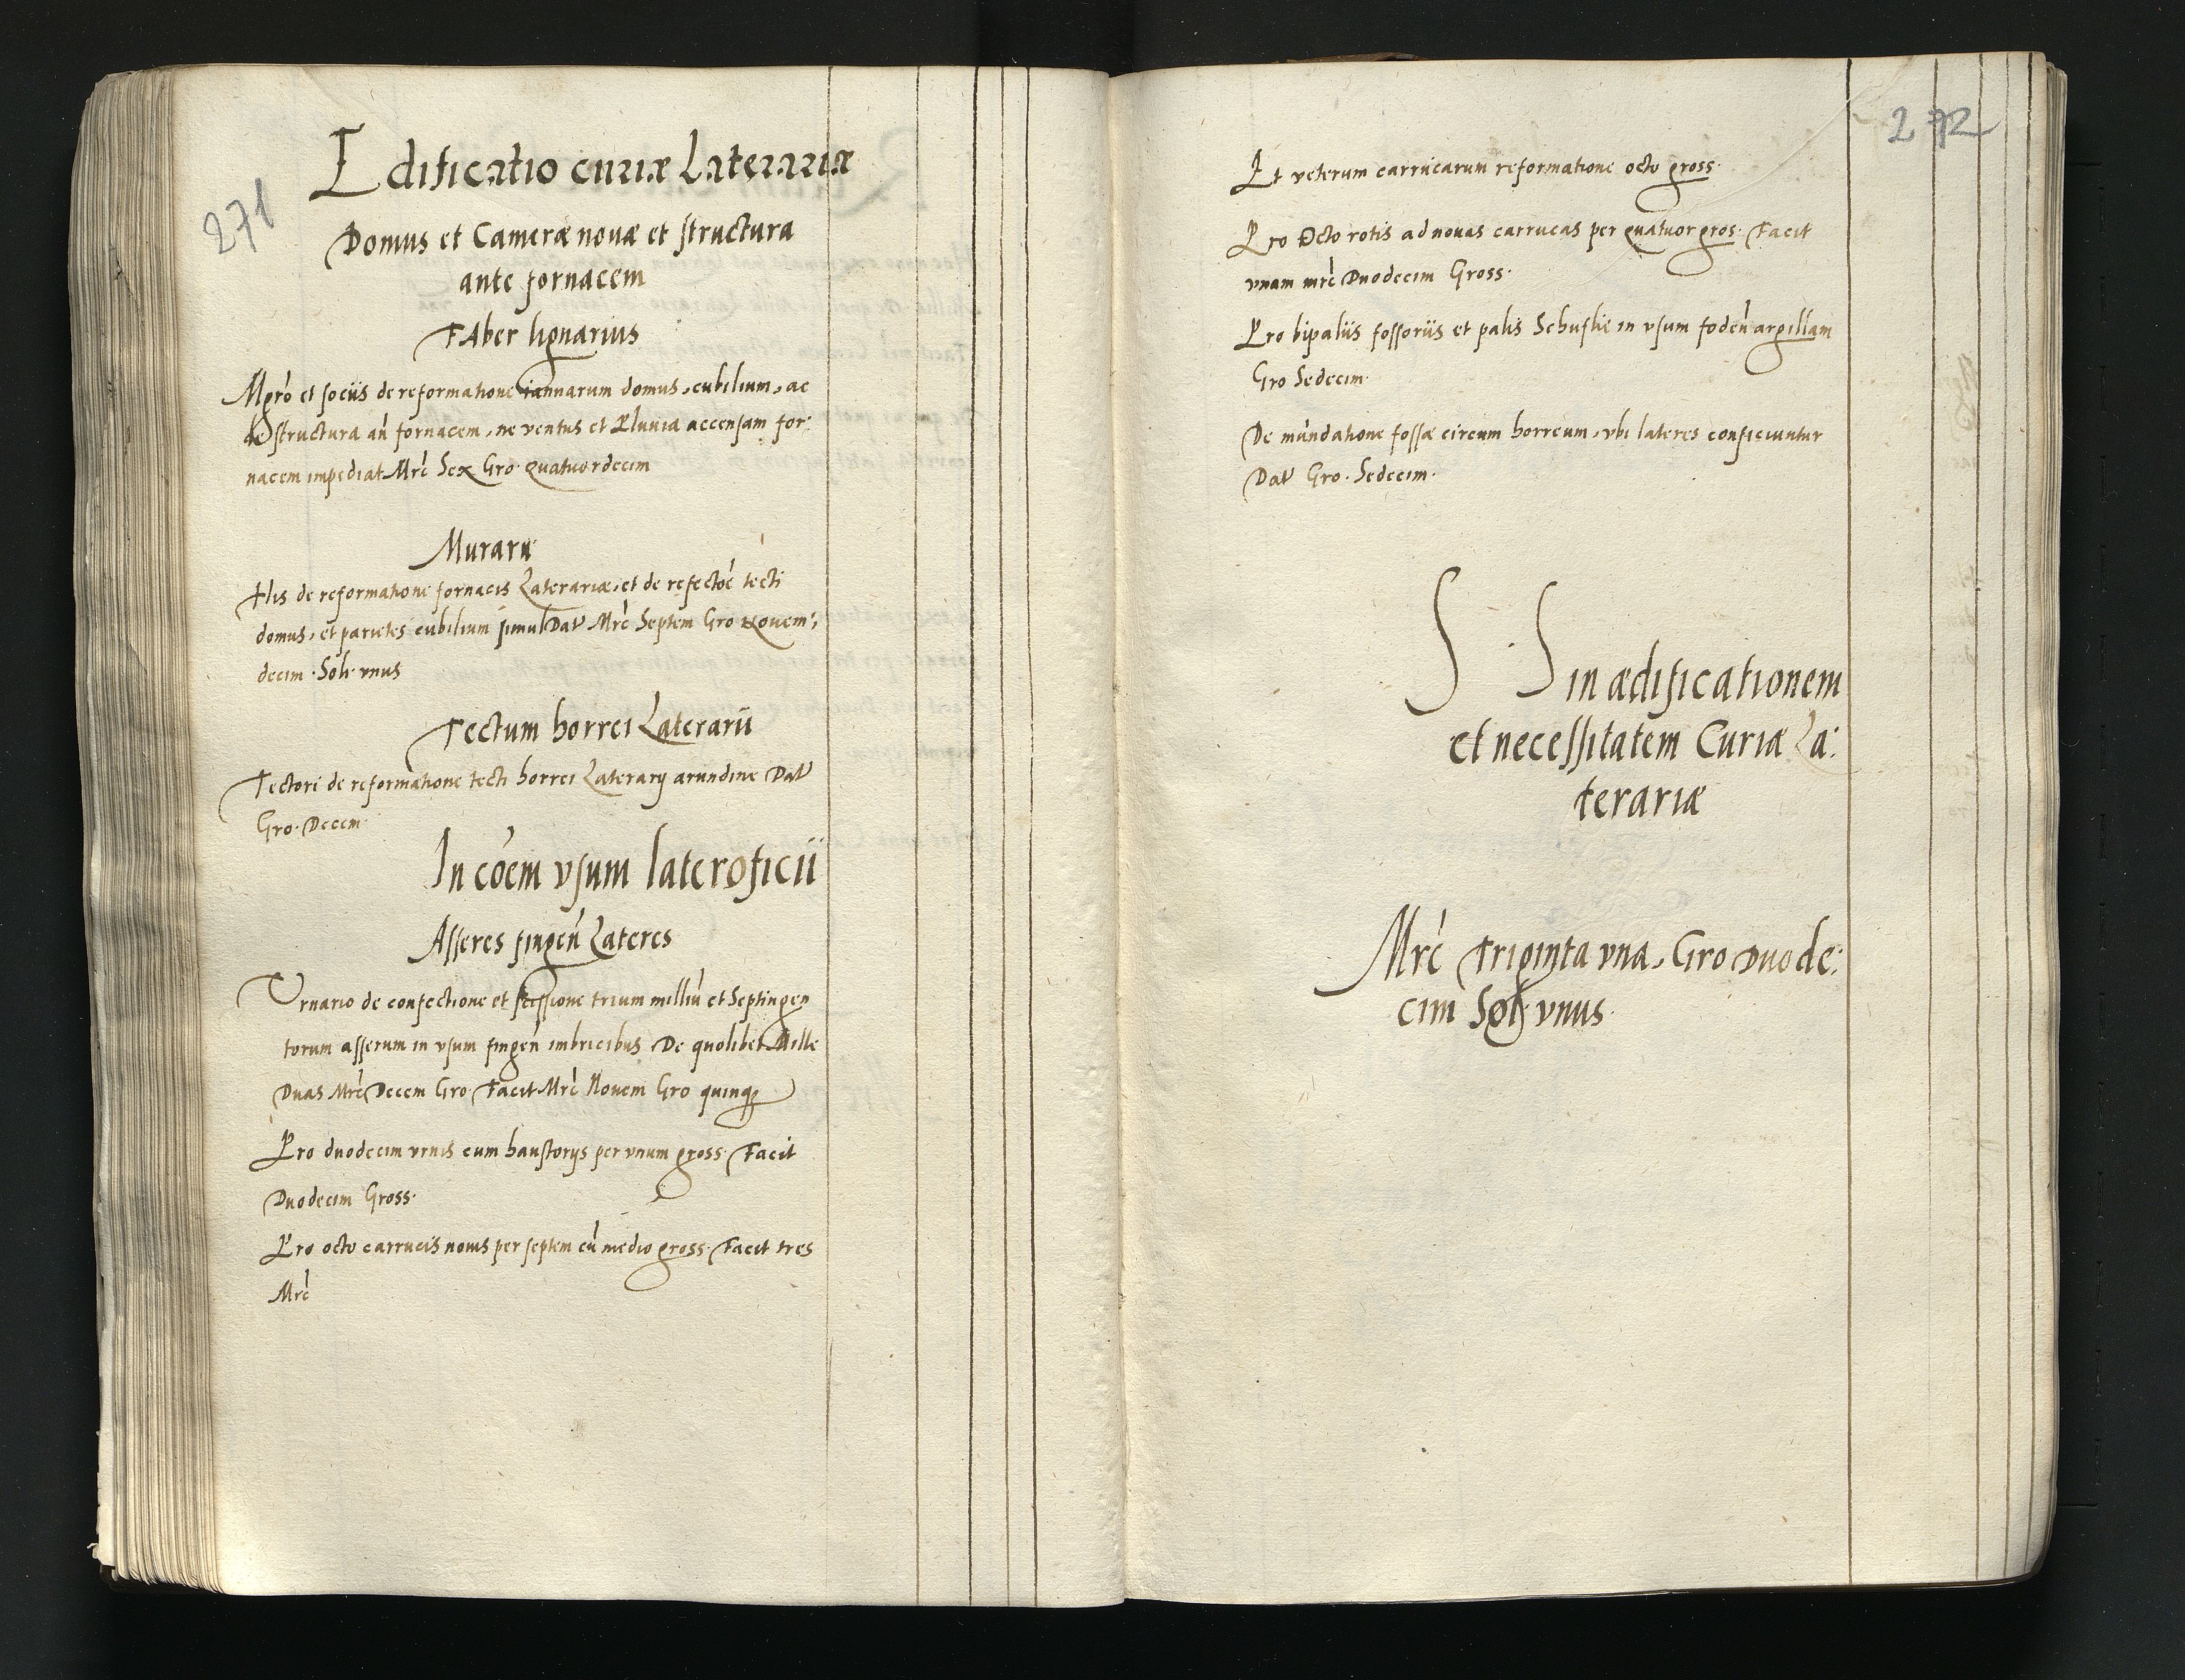 271
Edificatio curiæ Laterariæ
Domus et Cameræ nouæ et structura
ante fornacem
FAber lignarius
Mgrō et sociis de reformatione iannarum domus, cubilium, ac
de structura an̄ fornacem, ne ventus et Pluuia accensam for:
nacem impediat Mrc̄ Sex Gro. Quatuordecim
Murarii
His de reformatione fornacis Laterariæ, et de refectōe tecti
domus, et parietes cubilium simul Datr Mrc̄ Septem Gro Nouem:
decim. Soli. vnus
Tectum horrei Laterarii
Tectori de reformatione tecti horrei Laterarij arundine Datr
Gro. Decem.
In cōem vsum lateroficii
Asseres fingen̄ Lateres
Vrnario de confectione et scissione trium milliū et Septingen
torum asserum in vsum fingen̄ imbricibus De quolibet Mille
Duas Mrc̄ Decem Gro. Facit Mrc̄ Nouem Gro quinq₃
Pro duodecim vrnis cum haustorijs per vnum gross. Facit
Duodecim Gross.
Pro octo carrucis nouis per septem cū medio gross. Facit tres
Mrc̄
272
Et veterum carrucarum reformatione octo gross.
Pro Octo rotis ad nouas carrucas per quatuor gros. Facit
vnam mrc̄ Duodecim Gross.
Pro bipaliis fossoriis et palis Schuflie in vsum foden̄ argillam
Gro Sedecim.
De mundatione fossæ circum horreum, vbi lateres conficiuntur
Datr Gro. Sedecim.
S. S in ædificationem
et necessitatem Curiæ La:
terariæ
Mrc̄ Triginta vna, Gro Duode:
cim Soli vnus.